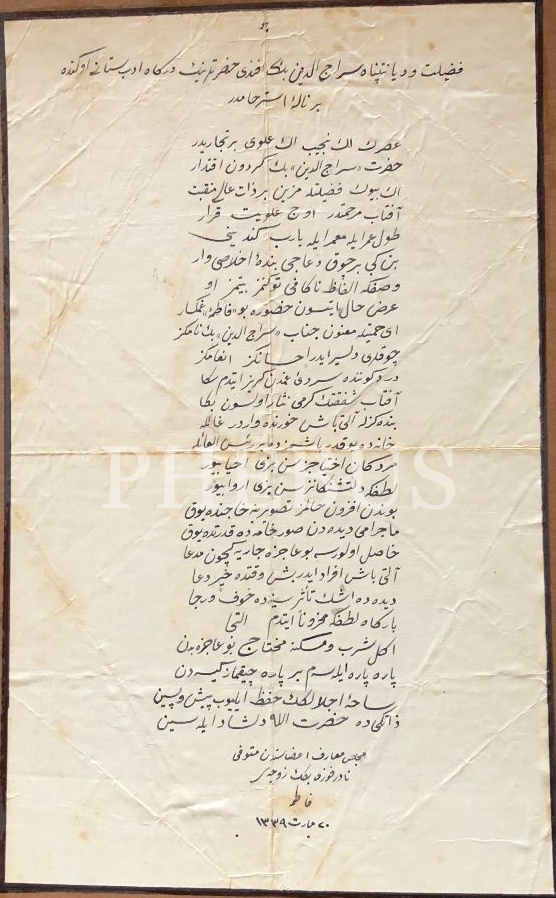 هو
فضیلت و دیانتپناه سراج الدین بك افندی حضرتلرینك درگاه ادب ستانی اوكنده
بر نالهٔ استرحامدر
عصرك اك نجیب اك علوی بر تجاریدر
حضرت «سراج الدین» بك گردون اقتدار
اك بیوك فضیلتله مزین بر ذات عالی منقبت
آفتاب مرحمتدر اوج علویت قرار
طول عمر ایله معمر ایله یارب كندیسنی
بن كبی بر چوق دعاجی بندهٔ اخلاصی وار
وصفكه الفاظ ناكافی توكنمز بیتمز او
عرض حال ایتسون حضوره بو «فاطمه» غمگسار
ای حمیتله معنون جناب «سراج الدین» بك نامكز
چوقدی دلسیر ایدر احسانكز انعامكز
درد كوننده سردئ غمدن گریز ایتدم سكا
آفتاب شفقتك كرمی نثار اولسون بكا
بنده كزله آلتی باش خورنده وار در عائله
خانه ده یوقدر باشمزده بر رئیس العائله
مردكان احتیاجز سن بزی احیا بیور
لطفكه دلتشنكانز سن بزی اروا بیور
بوندن افزون حالمز تصویرینه حاجتده یوق
ماجرامی دیده دن صور خامه ده قدرتده یوق
حاصل اولورسه بو عاجزه جاریه كچون مدعا
آلتی باش افراد ایدر بش وقتده خیر دعا
دیده ده اشك تأثر سینه ده خوف و رجا
بارگاه لطفكه محزوناً ایتدم التجا
اكل شرب و مسكنه محتاج بو عاجزه بدن
پاره پاره ایلسم بر پاره چیقماز كیسه دن
ساحهٔ اجلالكك حفظ ایلیوب پیش و پسین
ذاتكی ده حضرت الله دلشاد ایله سین
مجلس معارف اعضاسندن متوفی
نادر فوزی بكك زوجه سی
فاطمه
٢٠ مارت ١٣٣٩
PHEBUS